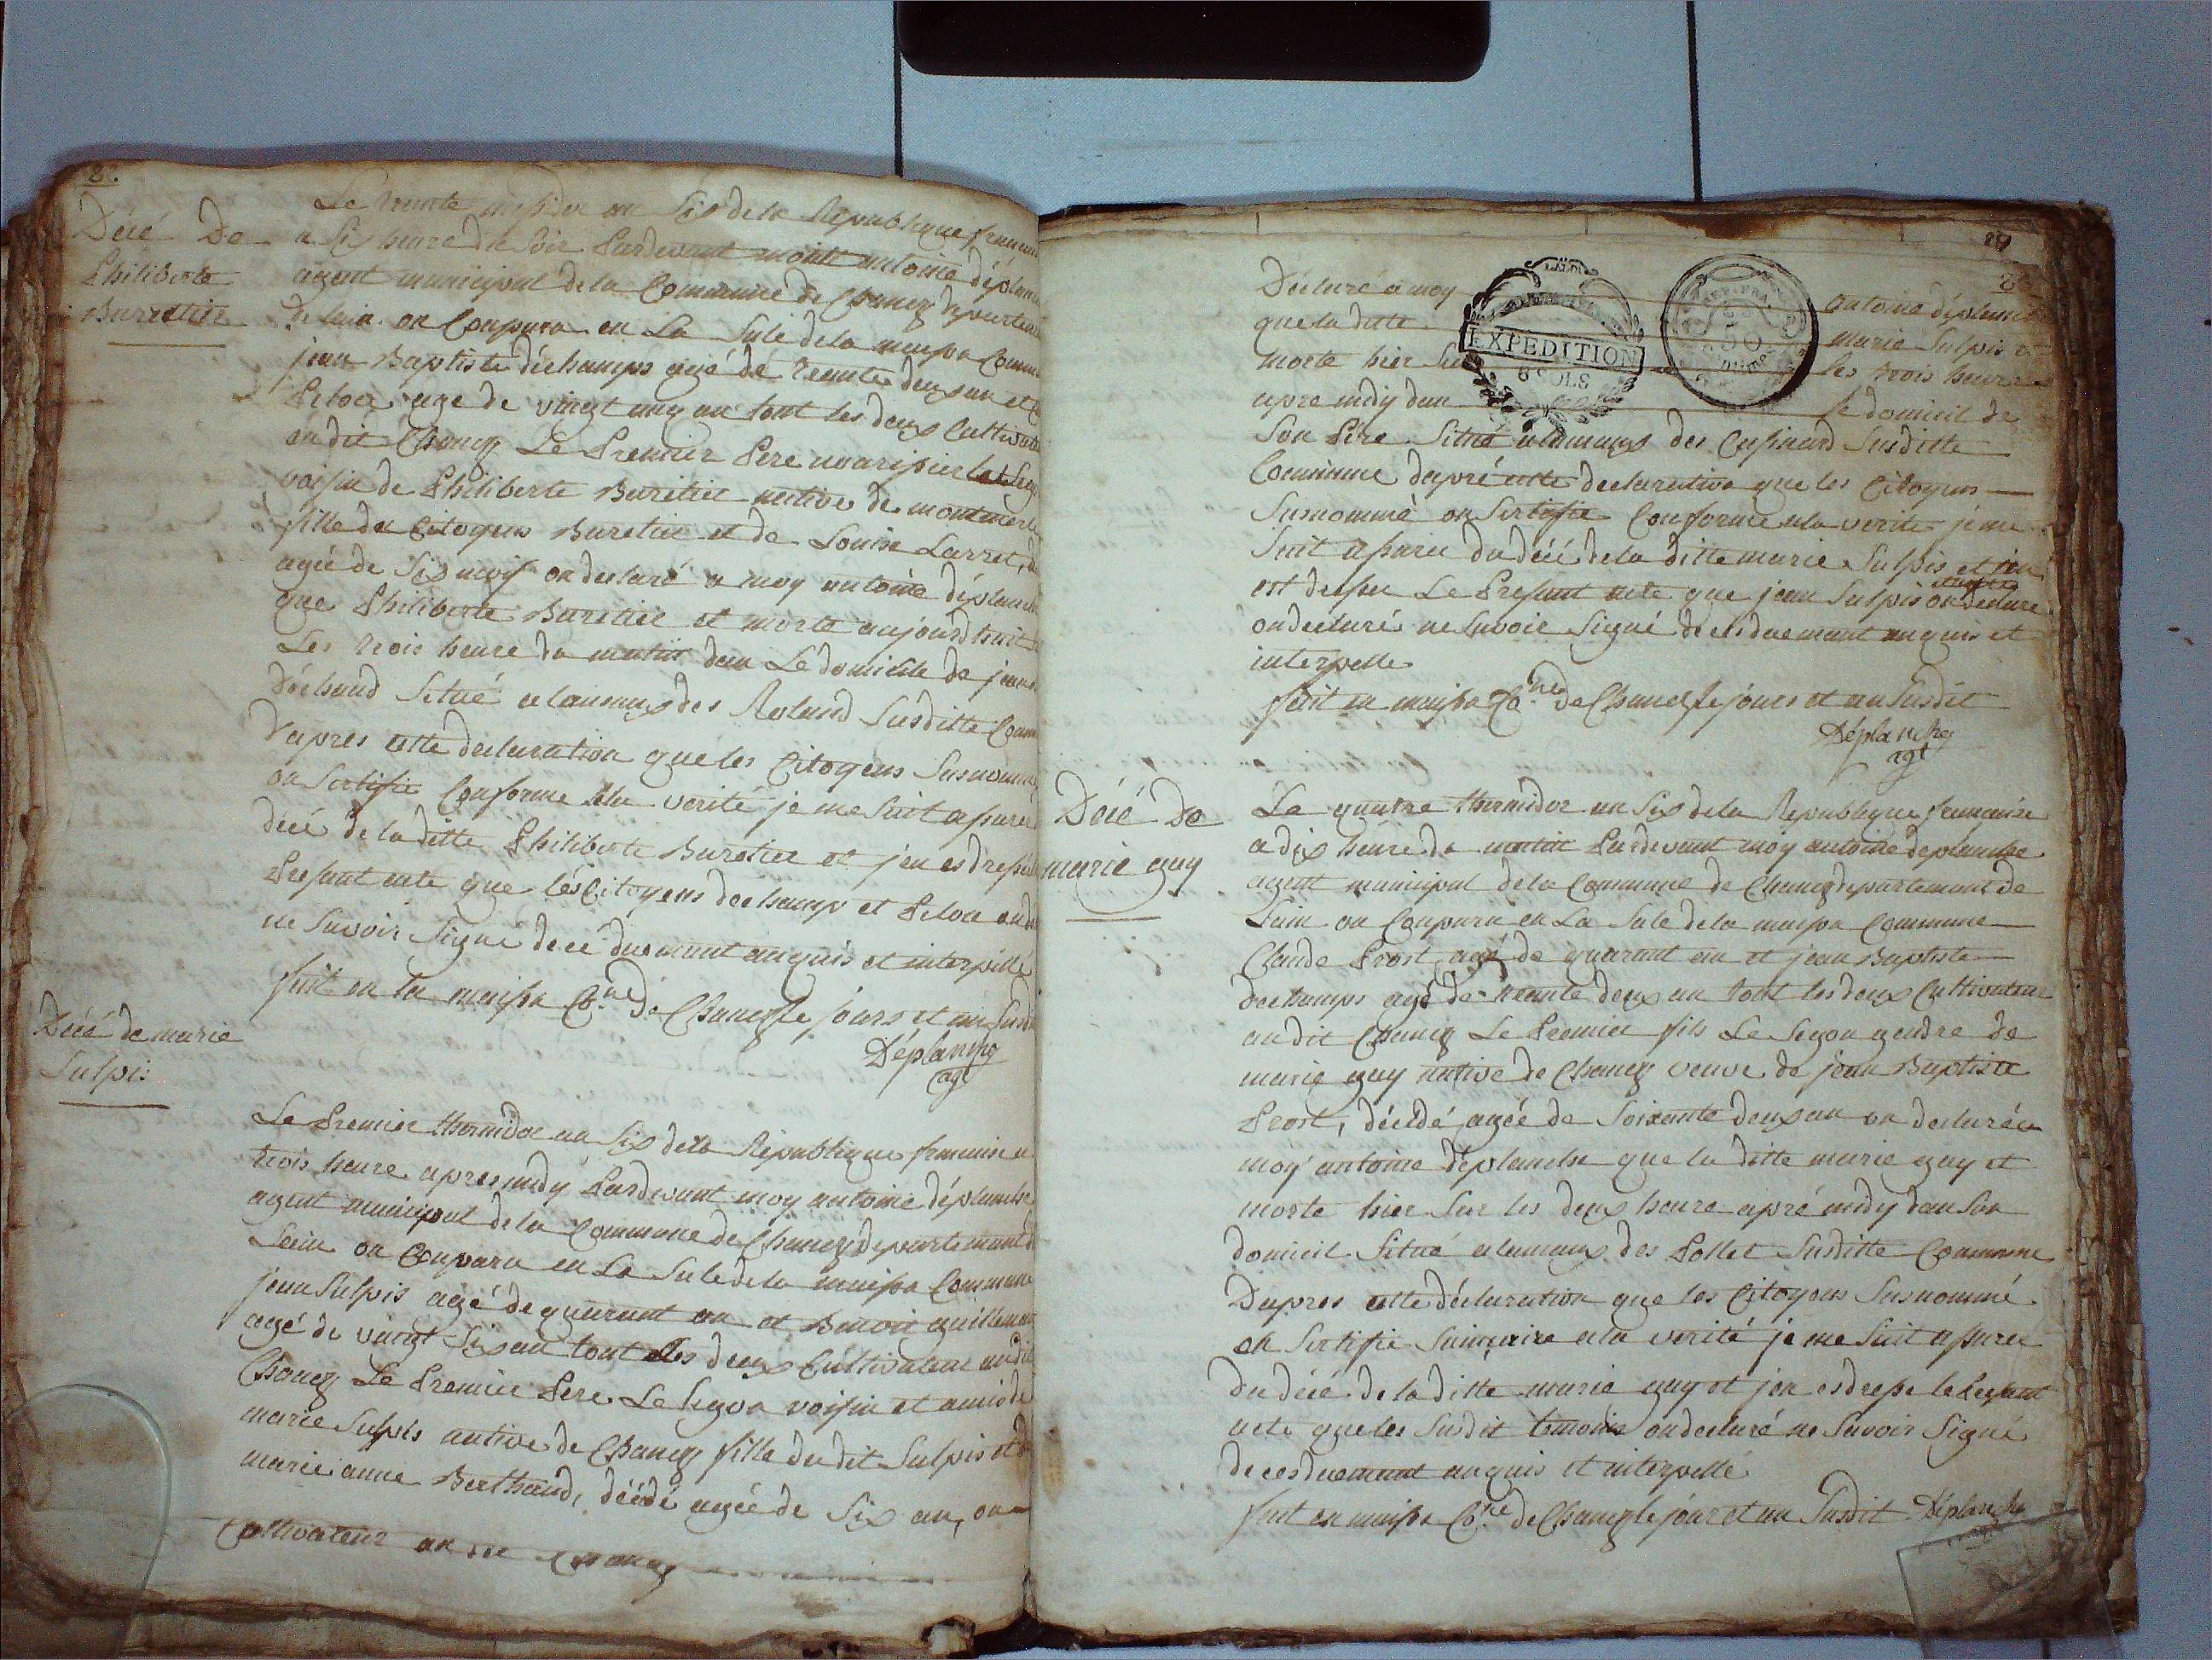 8.
Décé De
Philiberte
Buretier
Le trente messidor an Six de la République francais
a Six heure du Soir Pardevant moy antoine déplanche
agent municipal de la Commune de Chaneg departement
de lain on Conparu en La Sale de la maison Commune
jean Baptiste déchamps agé de trente deux an et
Peloux age de vingt cinq an tout les deux Cultivateur
audit Chaneg Le Premier Pere nourisier le Segon
voisin de Philiberte Buretier native de montmerle
fille du Citoyens Buretier et de Louise Larret,
agée de Six mois on declaré a moy antoine déplanche
que Philiberte Buretier et morte aujourdhuit
Les trois heure du matin dan Le domicile de jean
Déchand Situé alamaux des Roland Susditte Commune
D'apres cette declaration que les Citoyens Susnommé
on Sertifié Conforme ala verité je me Suit assuré
décé de la ditte Philiberte Buretier et j'en es dressé
Present acte que lés Citoyens dechamp et Peloux on
ne Savoir Signé de ce duemant anquis et interpellé
fait en la maison Cne de Chaneg le jours et an Susdit
Déplanche
agt
Décé de marie
Sulpis
Le Premier thermidor an Six de la République francaise a
trois heure apres midy Pardevant moy antoine déplanche
agent municipal de la Commune de Chaneg departement d
Lain on Conparu en La Sale de la maison Commune
jean Sulpis agé de quarant an et Benoit guillemot
agé de vingt Six an tout les deux Cultivateur audit
Chaneg Le Premier Pere Le Segon voisin et amis de
marie Sulpis native de Chaneg fille du dit Sulpis et d
marie anne Berthaud, décédé agée de Six an, on
Cultivateur au dit Chaneg
89
Déclaré a moy antoine déplanche
que la ditte marie Sulpis et
morte hier Sur les trois heure
apre midy dan le domicil de
Son Pere Situé alamaux des Cusinard Susditte
Commune dapré cette declaration que les Citoyens
Susnommé on Sertifié Conforme ala verité je me
Suit assuré du décé de la ditte marie Sulpis et j'en
est dresser Le Present acte que jean Sulpis on declaré
on declaré ne Savoir Signé de ces duemant anquis et
interpellé
fait en maison Cne de Chaneg le jours et an Susdit
Déplanche
agt
EXPEDITION
6 SOLS
50
Décé De
marie guy
Le quatre thermidor an Six de la République francaise
a dix heure du matin Pardevant moy antoine deplanche
agent municipal de la Commune de Chaneg departemant de
Lain on Conparu en La Sale de la maison Commune
Claude Prost agé de quarant an et jean Baptiste
dechamps agé de trente deux an tout les deux Cultivateur
audit Chaneg Le Premier fils Le Segon gendre de
marie guy native de Chaneg veuve de jean Baptiste
Prost, décédé agée de Soixante deux an on declaré a
moy antoine déplanche que la ditte marie guy et
morte hier Sur les deux heure apré midy dan Son
domicil Situé alamaux des Pollet Susditte Commune
Dapres cette déclaration que les Citoyens Susnommé
on Sertifié Sainçaire ala verité je me Suit assurer
du décé de la ditte marie guy et jen es dressé le Present
acte que les Susdit temoins on declaré ne Savoir Signé
de ces duemant anquis et interpellé
fait en maison Cne de Chaneg le jour et an Susdit Déplanche